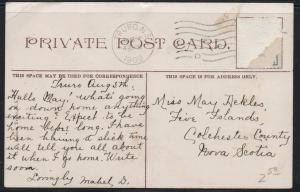 TRURO, N.S.
1908
PRIVATE POST CARD.
THIS SPACE MAY BE USED FOR CORRESPONDENCE
THIS SPACE IS FOR ADDRESS ONLY.
Truro Aug 5th.
Hello May! whats going
on down home anything
exciting? Expect to be
home before long. I have
been having to stick time
will tell you all about
it when I go home. Write
soon.
Lovingly Mabel D.
Miss May Heckles,
Five Islands,
Colchester County
Nova Scotia